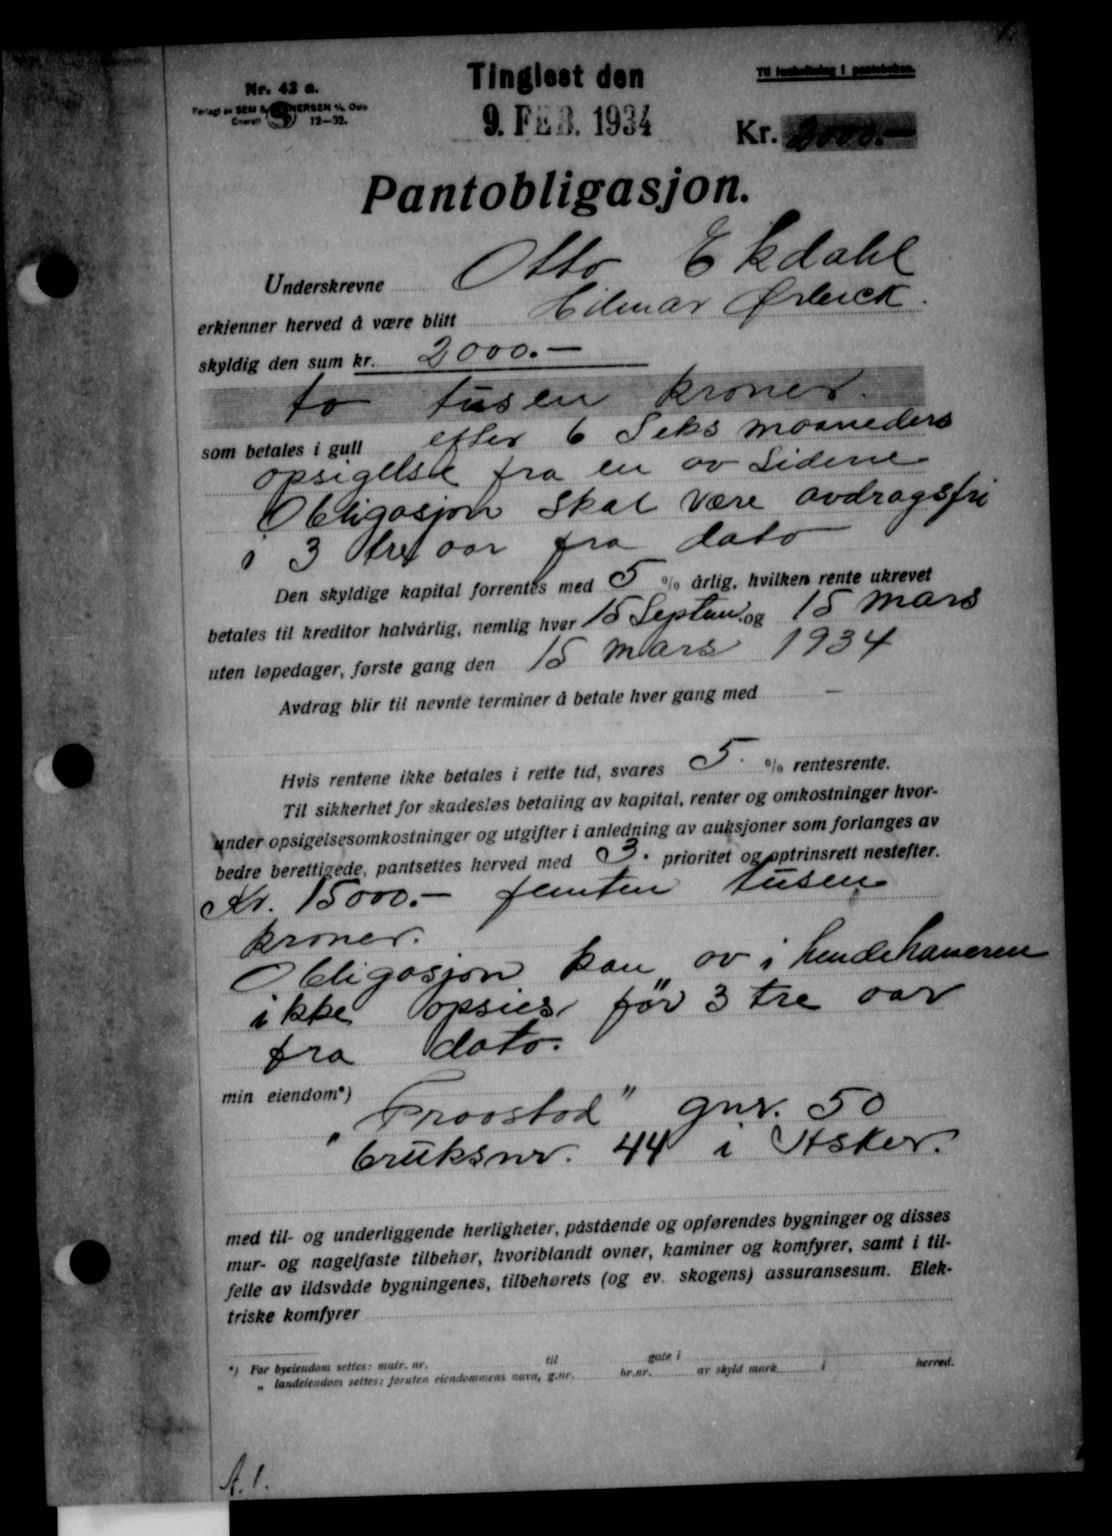 Nr. 42 a.
Forlagt av SEM & STENERSEN A/S, Oslo
Enerett 12—32.
Tinglest den
9. FEB. 1934
Til innheftning i panteboken.
Kr. 2000.—
Pantobligasjon.
Underskrevne Otto Ekdahl
erkjenner herved å være blitt Hilmar
skyldig den sum kr. 2000.—
to tusen kroner.
som betales i gull efter 6 Seks maaneders
opsigelse fra en av Siderne
Obligasjon skal være avdragsfri
i 3 tre aar fra dato
Den skyldige kapital forrentes med 5 % årlig, hvilken rente ukrevet
betales til kreditor halvårlig, nemlig hver 15 Septem. og 15 mars
uten løpedager, første gang den 15 mars 1934
Avdrag blir til nevnte terminer å betale hver gang med —
Hvis rentene ikke betales i rette tid, svares 5 % rentesrente.
Til sikkerhet for skadesløs betaling av kapital, renter og omkostninger hvor-
under opsigelsesomkostninger og utgifter i anledning av auksjoner som forlanges av
bedre berettigede, pantsettes herved med 3. prioritet og optrinsrett nestefter.
Kr. 15000.— femten tusen
kroner.
Obligasjon kan av ihendehaveren
ikke opsies før 3 tre aar
fra dato.
min eiendom*)
„ " gnr. 50
bruksnr. 44 i Asker.
med til- og underliggende herligheter, påstående og opførendes bygninger og disses
mur- og nagelfaste tilbehør, hvoriblandt ovner, kaminer og komfyrer, samt i til-
felle av ildsvåde bygningenes, tilbehørets (og ev. skogens) assuransesum. Elek-
triske komfyrer
*) For byeiendom settes: matr. nr. til gate i
„ landeiendom settes: foruten eiendommens navn, g.nr. br.nr. av skyld mark i herred.
A. 1.